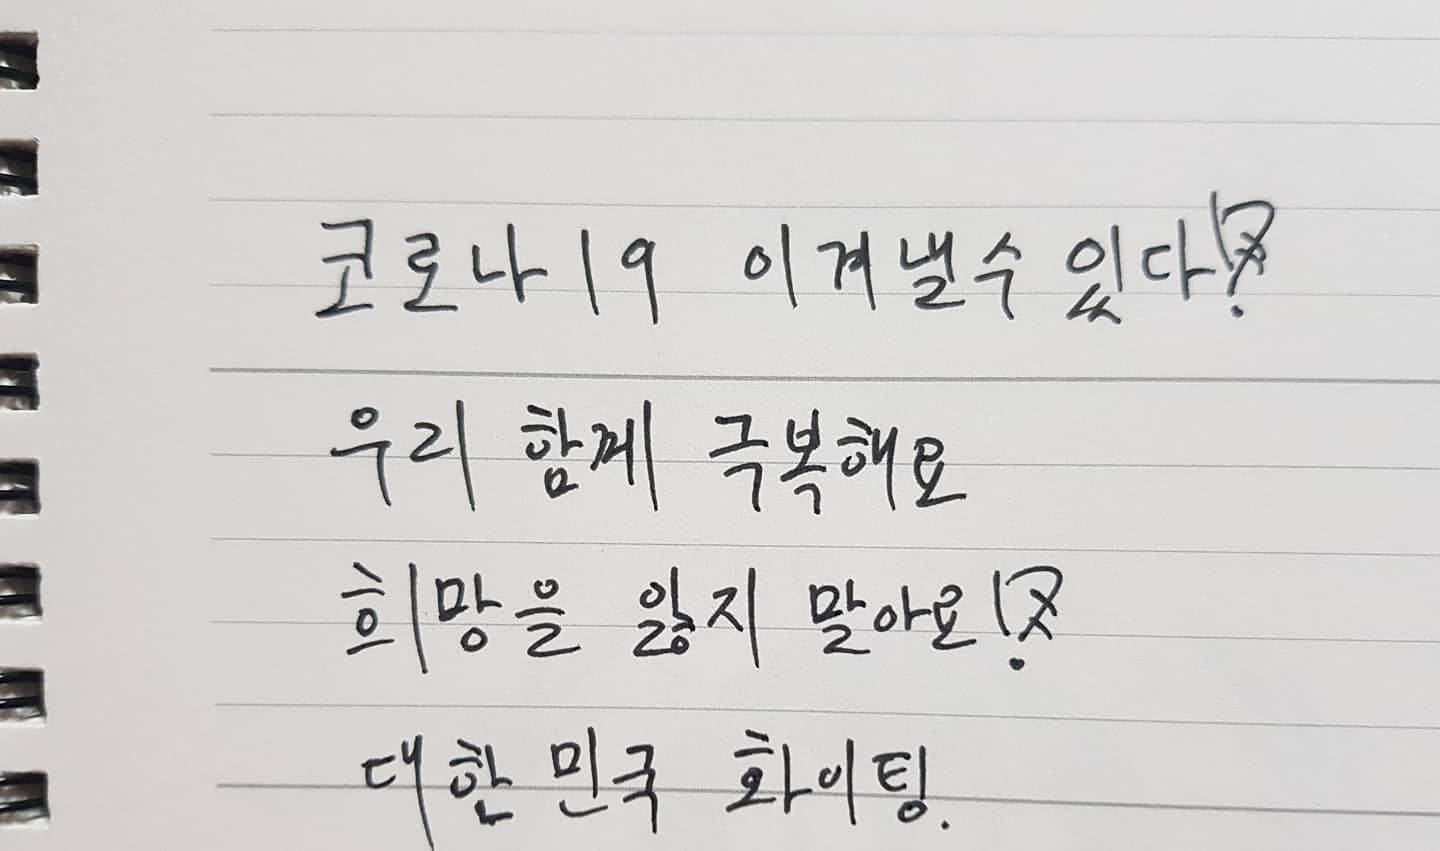 코로나19 이겨낼수 있다!
우리 함께 극복해요
희망을 잃지 말아요!
대한민국 화이팅.